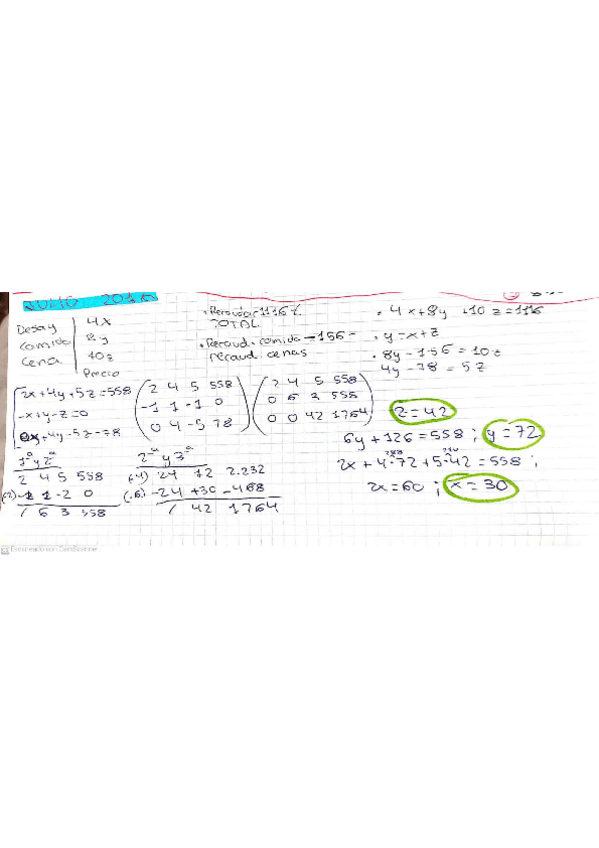 JUNIO 2016
Desay | 4x
comida | 8y
cena | 10z
Precio
• Recaudar 1116€
TOTAL
• Recaud. comida - 156 =
recaud cenas
• 4x+8y+10z=1116
• y=x+z
• 8y-156=10z
4y-78=5z
2x+4y+5z=558
-x+y-z=0
0x+4y-5z=78
2 4 5 558
-1 1 -1 0
0 4 -5 78
2 4 5 558
0 6 3 558
0 0 42 1764
z=42
6y+126=558; y=72
2x+4·72+5·42=558;
2x=60; x=30
1ª y 2ª
2 4 5 558
/ 6 3 558
2ª y 3ª
(4) 24 12 2.232
(-6) -24 +30 -468
/ 42 1764
Escaneado con CamScanner